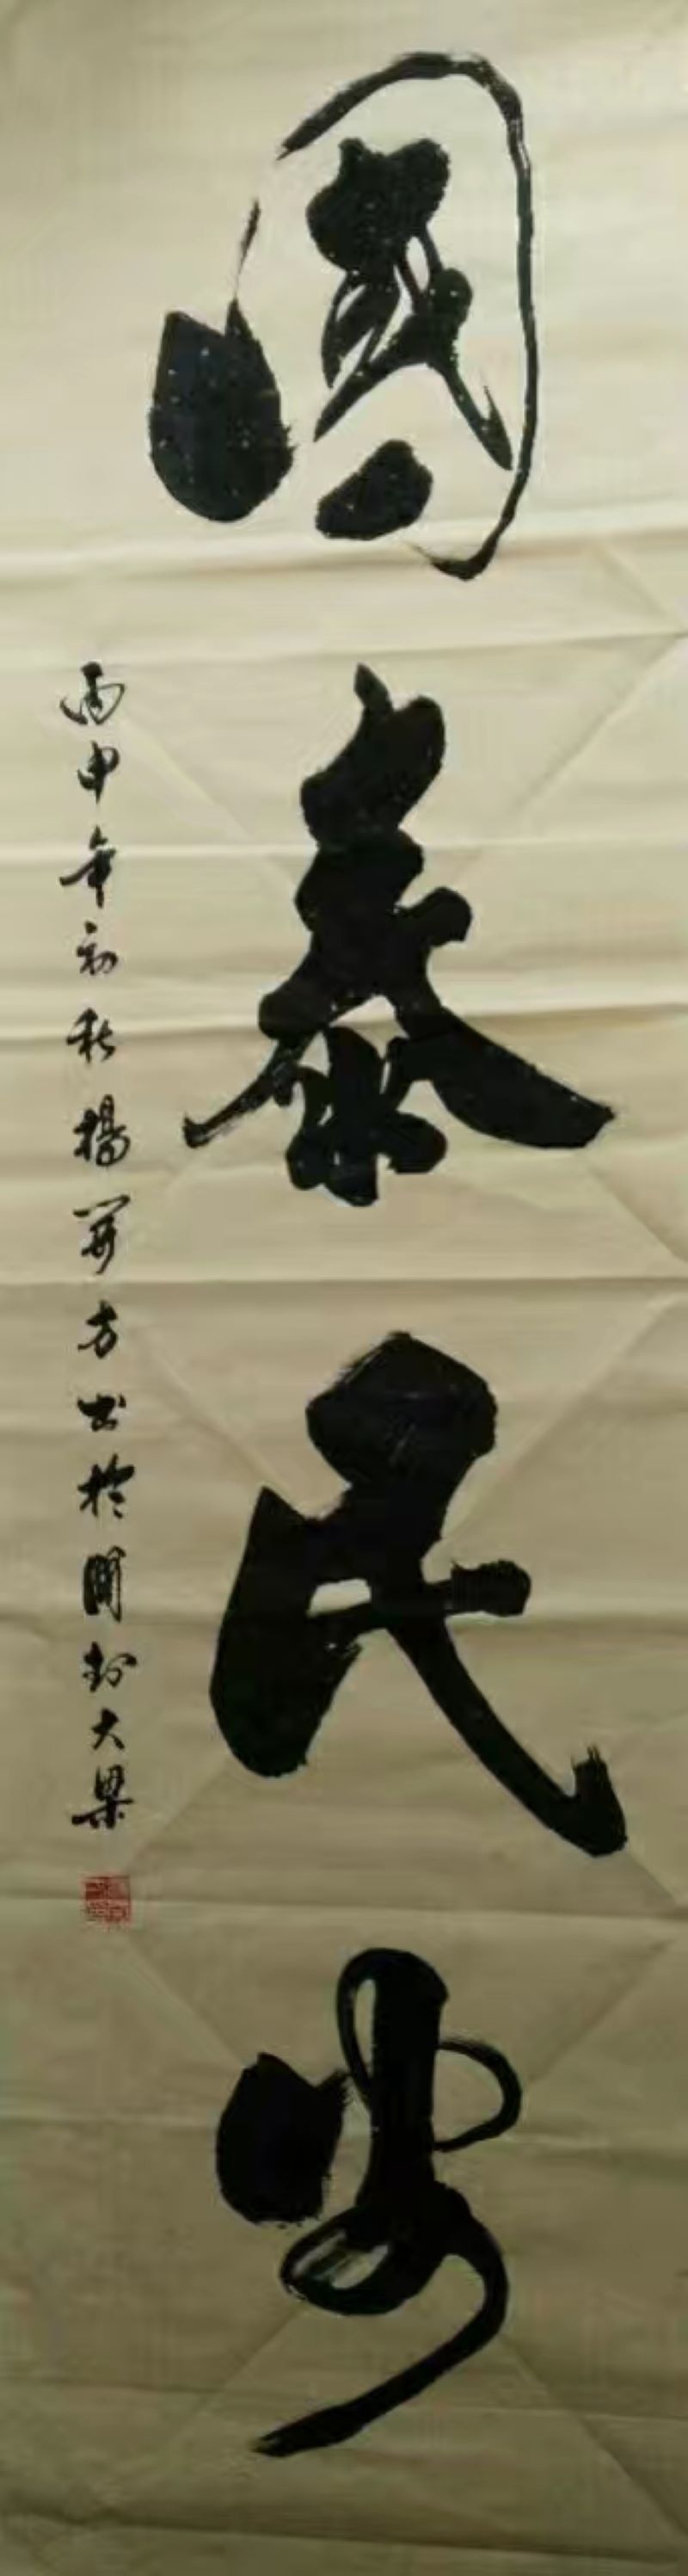 國泰民安
丙申年初秋楊開方书於開封大梁